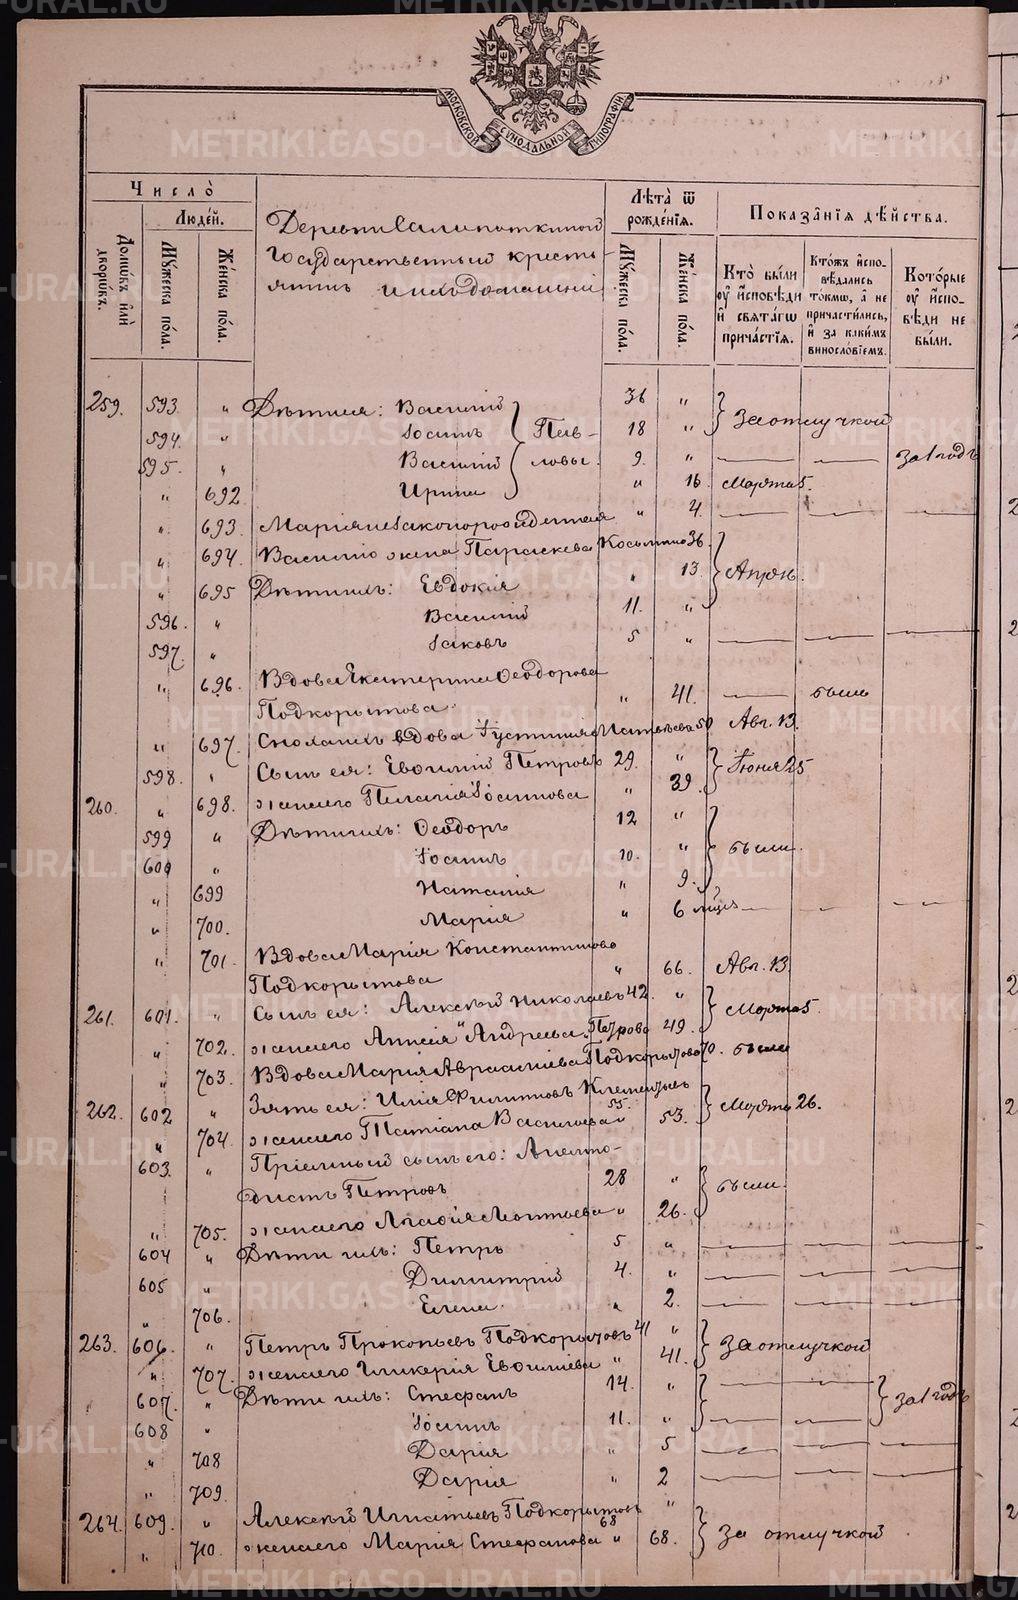 МОСКОВСКОЙ СѴНОДАЛЬНОЙ ТИПОГРАФІИ
Число̀
Люде́й.
Домѡ́въ и҆лѝ дворѡ́въ.
Мꙋ́жеска по́ла.
Же́нска по́ла.
Деревни
Государственныи кресть-
яне и ихъ домашніи
Лѣ́та ѿ рожде́нїѧ.
Мꙋ́жеска по́ла.
Же́нска по́ла.
Показа̑нїѧ дѣ́йства.
Кто̀ бы́ли оу҆ и҆́сповѣди и҆ свѧта́гѡ прича́стїѧ.
Кто́жъ и҆спо-вѣ́дались то́кмѡ, а҆ не причасти́лись, и҆ за каки́мъ винословїемъ.
Кото́рые оу҆ и҆́спо-вѣди не бы́ли.
259. 593. " Дѣти ея: Василій 36 " За отлучкой
594. " Іосифъ Пав- 18 "
595. " Василій ловы. 9. " — — за 1 годъ
" 692 Ирина " 16. Марта 5.
" 693. Марія незаконорожденная " 4 — — —
" 694. Василія жена Параскева Косьмина 36.
" 695 Дѣти ихъ: Евдокія " 13. Апрѣл.
596. " Василій 11. "
597. " Іаковъ 5 " — — —
" 696. Вдова Екатерина Ѳеодорова
Подкорытова " 41. — были
" 697. Сноха ихъ вдова Іустинія Матвѣева 50 Авг. 13.
598. " Сынъ ея: Евфимій Петровъ 29. " Іюня 25
260. " 698. жена его Пелагія Іосифова " 39.
599 " Дѣти ихъ: Ѳеодоръ 12 "
600 " Іосифъ 10. " были.
" 699 Наталія " 9.
" 700. Марія " 6 — — —
" 701. Вдова Марія Константинова
Подкорытова " 66. Авг. 13.
261. 601. " Сынъ ея: Алексѣй Николаевъ 42. " Марта 5.
" 702. жена его Анисія Андреева 49.
" 703. Вдова Марія Подкорытова 70. были
262. 602 " Зять ея: Илія Филипповъ Клементьевъ 55 Марта 26.
" 704. жена его Татіана Васильева " 53.
603. " Пріемный сынъ его:
Петровъ 28 " были.
" 705. жена его Агафія Леонтьева " 26.
604 " Дѣти ихъ: Петръ 5 " — — —
605 " Димитрій 4. " — — —
" 706. Елена " 2. — — —
263. 606. " Петръ Прокопьевъ Подкорытовъ 41 " За отлучкой
" 707. жена его Гликерія Евфиміева " 41.
607. " Дѣти ихъ: Стефанъ 14. " — — за 1 годъ
608 " Іосифъ 11. " — —
" 708 Дарія " 5 — — —
" 709. Дарія " 2 — — —
264. 609. " Алексѣй Игнатьевъ Подкорытовъ 68 "
" 710. жена его Марія Стефанова " 68. За отлучкой
METRIKI.GASO-URAL.RU